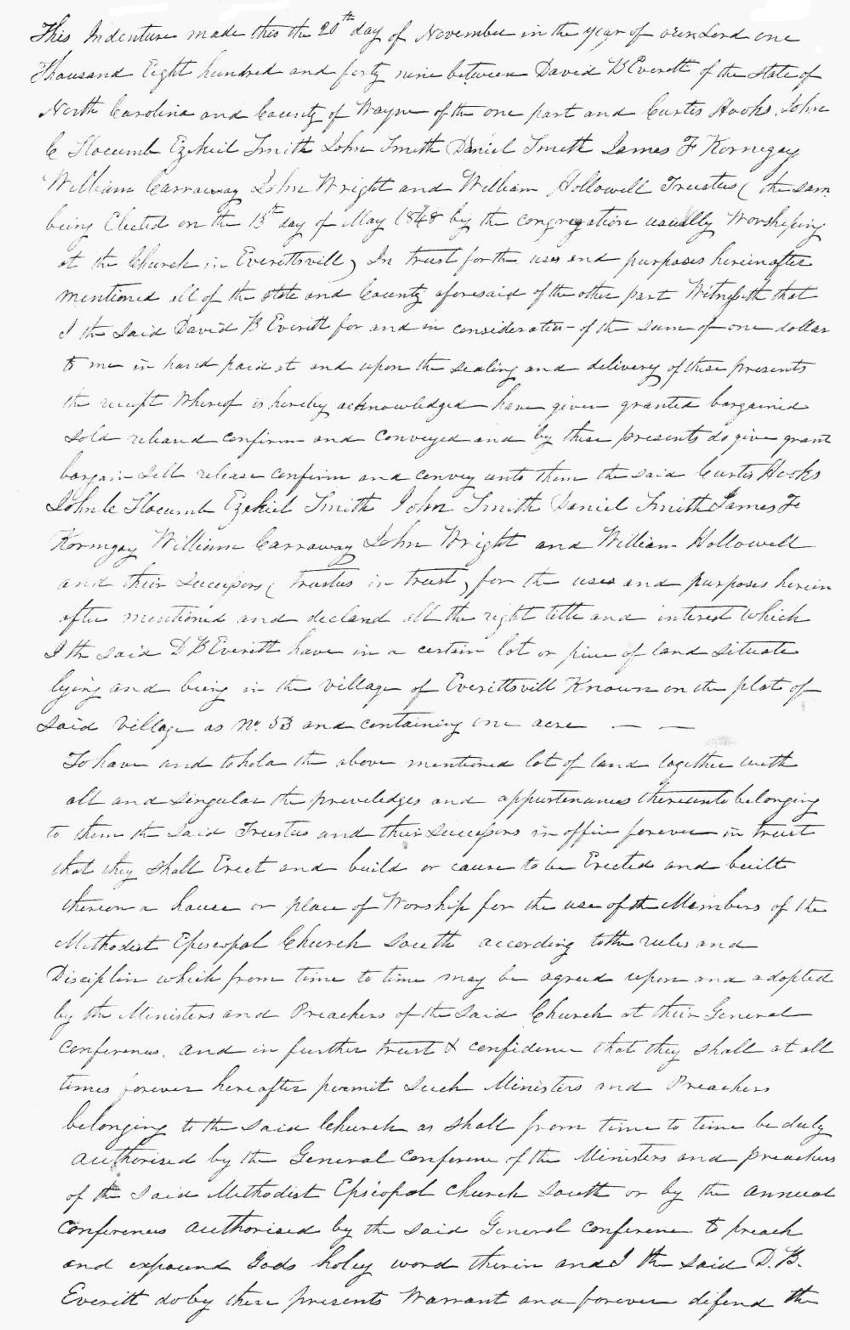 This Indenture made this the 20th day of November in the year of our Lord one
Thousand Eight hundred and forty nine between David B Everett of the State of
North Carolina and County of Wayne of the one part and Curtis Hooks, John
C Slocumb Ezekiel Smith John Smith Daniel Smith James F Kornegay
William Carraway John Wright and William Hollowell Trustees (the same
being Elected on the 13th day of May 1848 by the congregation usually Worshiping
at the Church in Everettsvill) In trust for the uses and purposes hereinafter
mentioned all of the State and County aforesaid of the other part Witnesseth that
I the Said David B Everitt for and in consideration of the sum of one dollar
to me in hand paid at and upon the sealing and delivery of these presents
the receipt Whereof is hereby acknowledged have given granted bargained
sold released confirm and conveyed and by these presents do give grant
bargain sell release confirm and convey unto them the said Curtis Hooks
John C Slocumb Ezekiel Smith John Smith Daniel Smith James F
Kornegay William Carraway John Wright and William Hollowell
and their successors (trustees in trust) for the uses and purposes herein
after mentioned and declared all the right title and interest which
I the said D B Everitt have in a certain lot or piece of land Situate
lying and being in the village of Everittsvill Known on the plot of
Said Village as No. 53 and containing one acre — —
To have and to hold the above mentioned lot of land together with
all and singular the priveledges and appurtenances thereunto belonging
to them the said Trustees and their successors in office forever in trust
that they shall Erect and build or cause to be Erected and built
thereon a house or place of Worship for the use of the Members of the
Methodist Episcopal Church South according to the rules and
Disciplin which from time to time may be agreed upon and adopted
by the Ministers and Preachers of the said Church at their General
Conferences. and in further trust & confidence that they shall at all
times forever hereafter permit such Ministers and Preachers
belonging to the said Church as shall from time to time be duly
authorised by the General Conference of the Ministers and preachers
of the said Methodist Episcopal Church South or by the annual
Conferences authorised by the said General Conference to preach
and expound Gods holey word therein and I the said D. B.
Everitt do by these presents Warrant and forever difend the